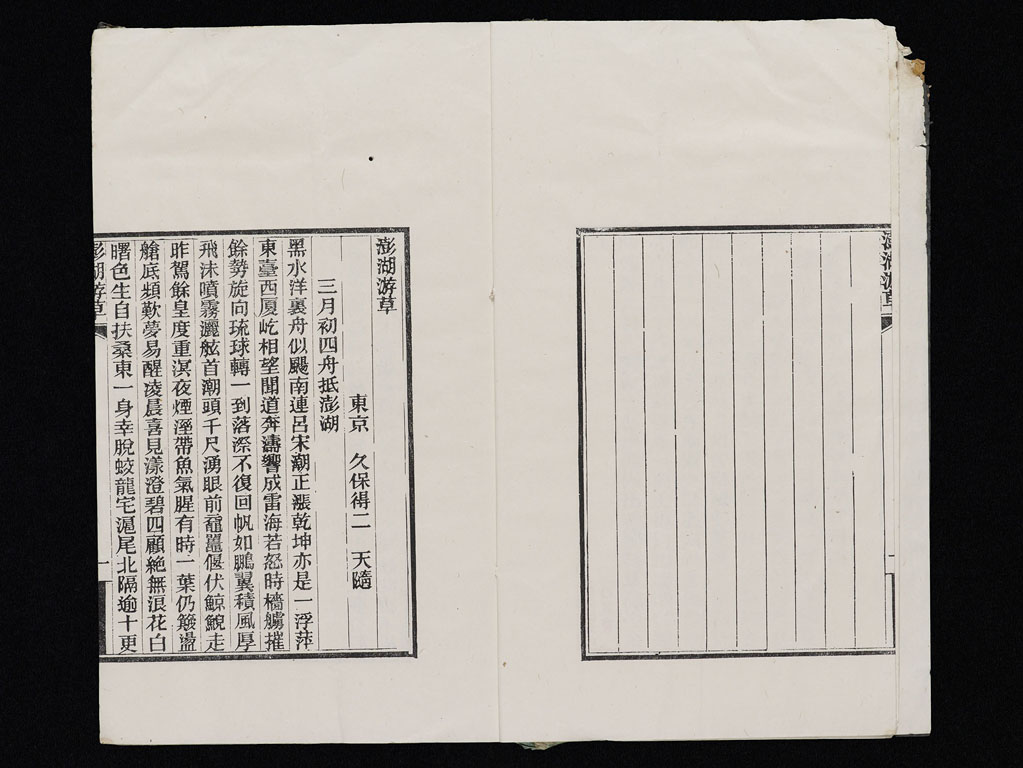 澎湖游草
澎湖游草
東京　久保得二　天隨
三月初四舟抵澎湖
黑水洋裏舟似颺南連呂宋潮正漲乾坤亦是一浮萍
東臺西厦屹相望聞道奔濤響成雷海若怒時檣艣摧
餘勢旋向琉球轉一到落漈不復回帆如鵬翼積風厚
飛沫噴霧灑舷首潮頭千尺湧眼前黿鼉偃伏鯨鯢走
昨駕餘皇度重溟夜煙溼帶魚氣腥有時一葉仍簸盪
艙底頻歎夢易醒凌晨喜見漾澄碧四顧絶無浪花白
曙色生自扶桑東一身幸脫蛟龍宅滬尾北隔逾十更
澎湖游草
一